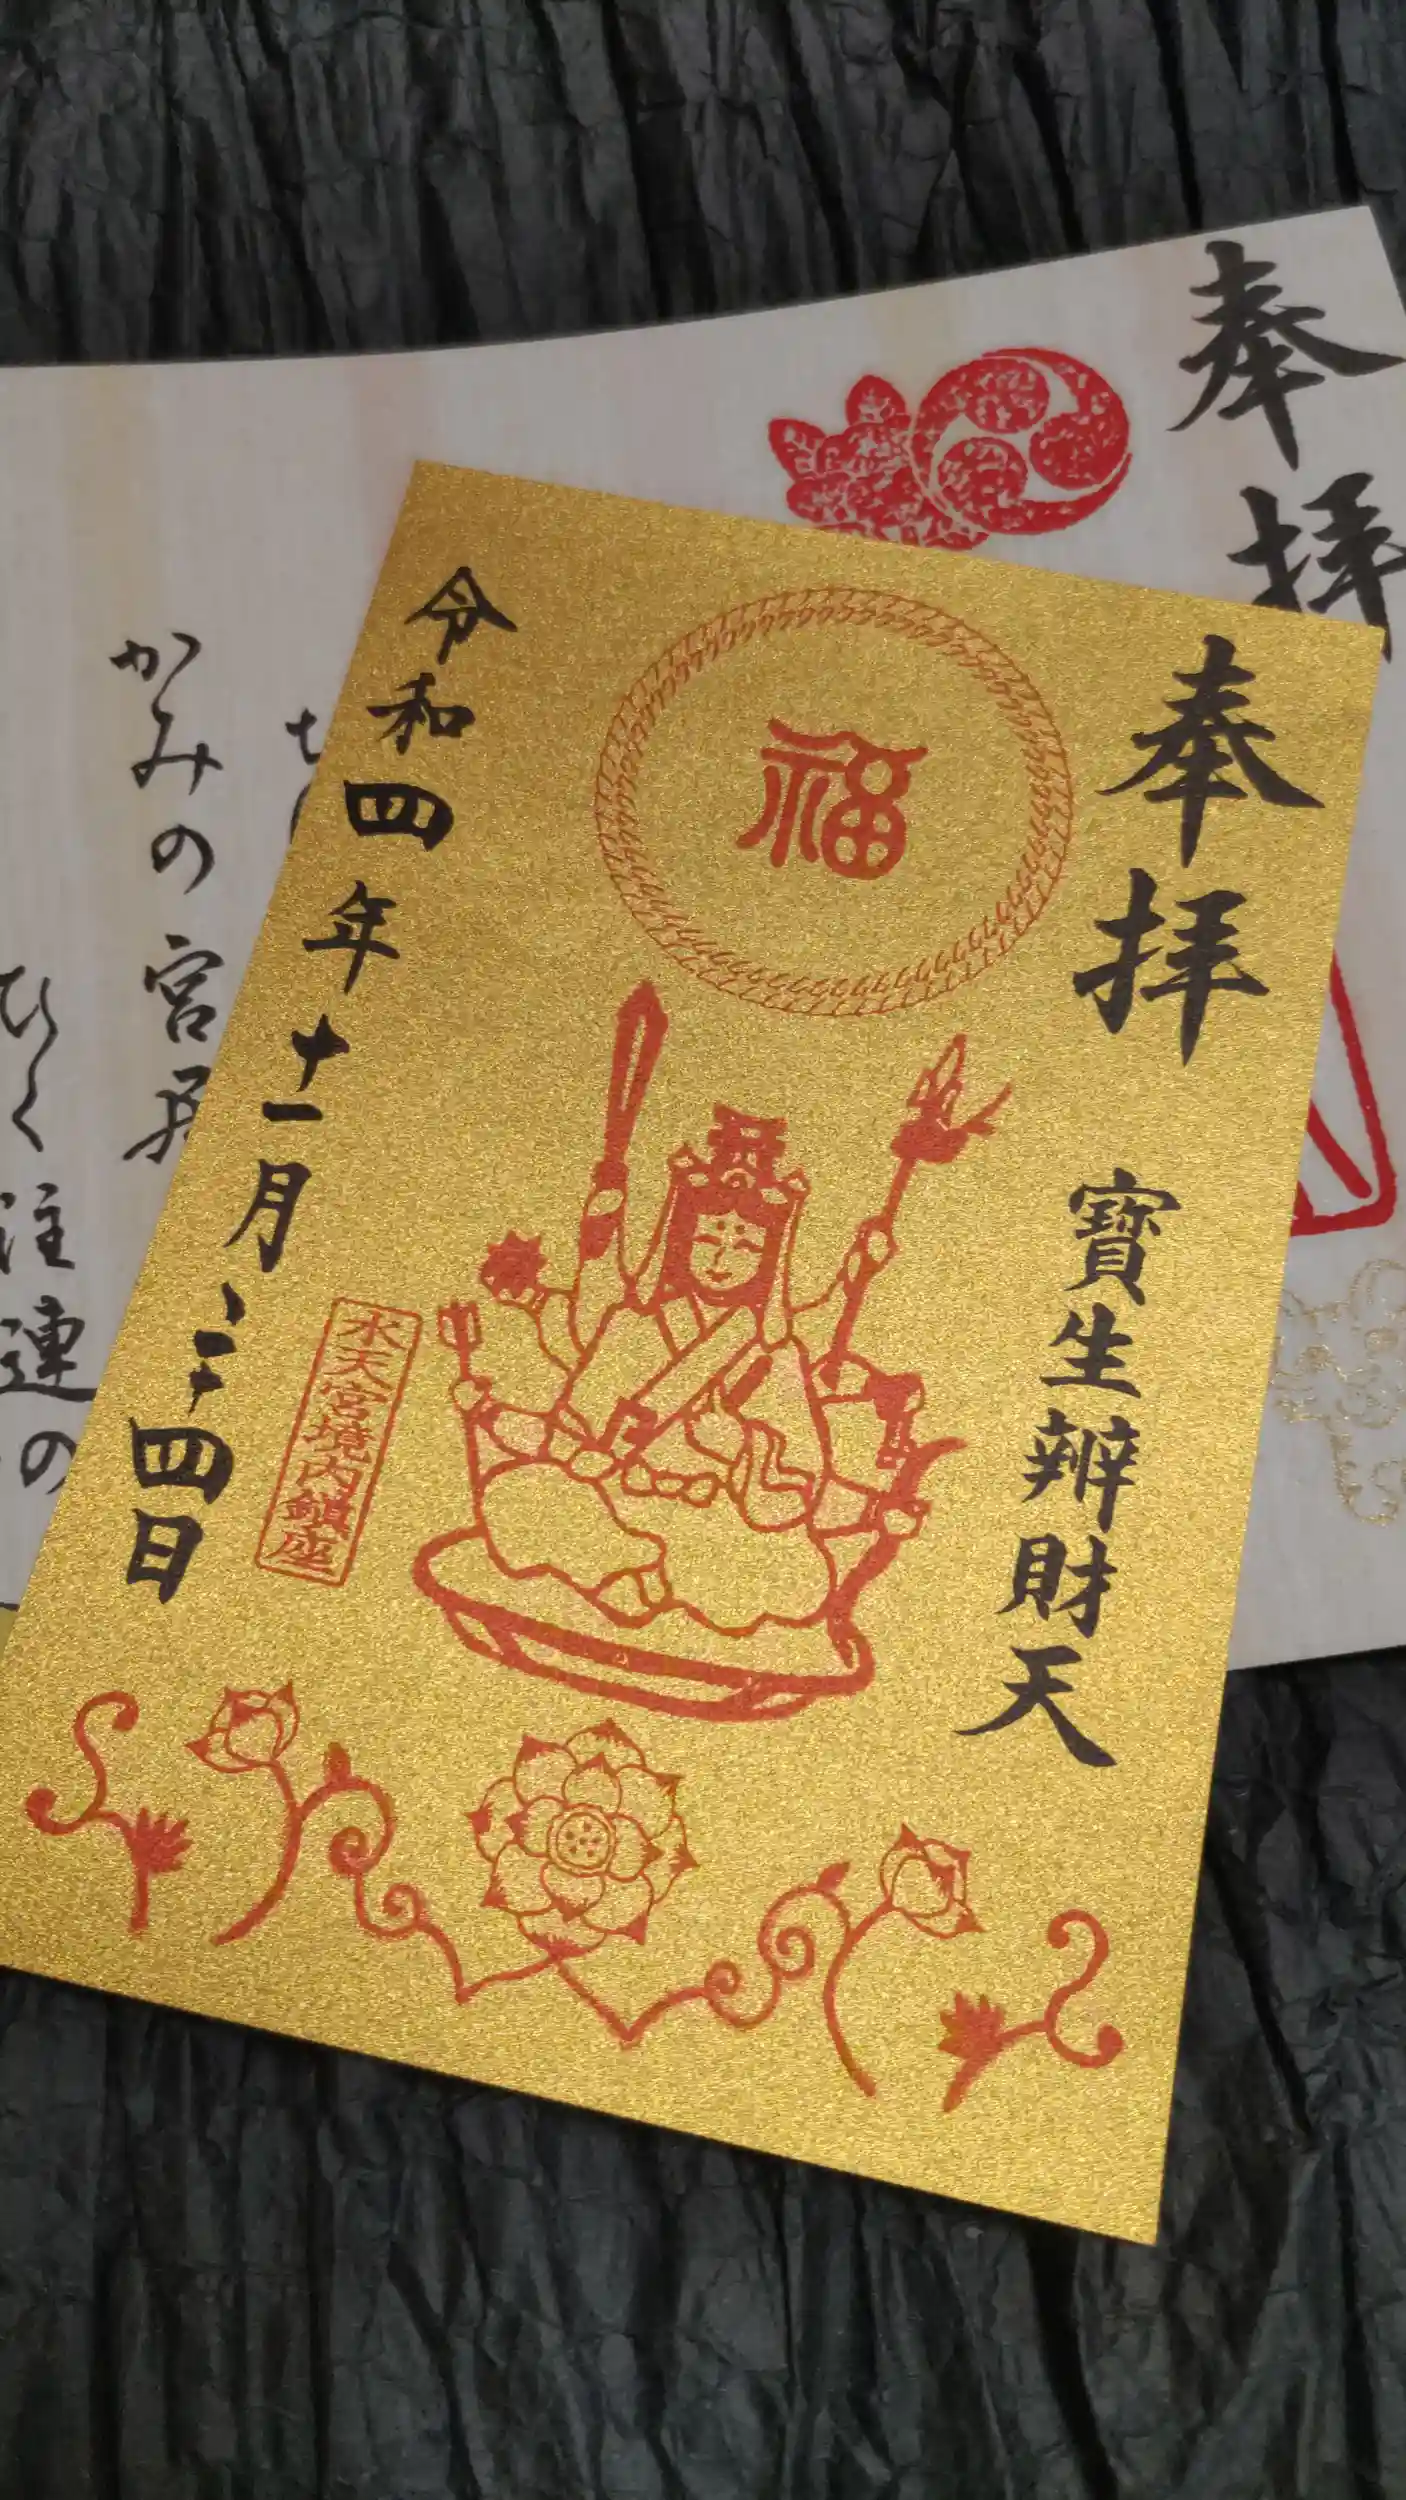 奉拝
奉拝
寶生辨財天
福
水天宮境内鎮座
令和四年十一月二十四日
かみの宮居
ひく注連の